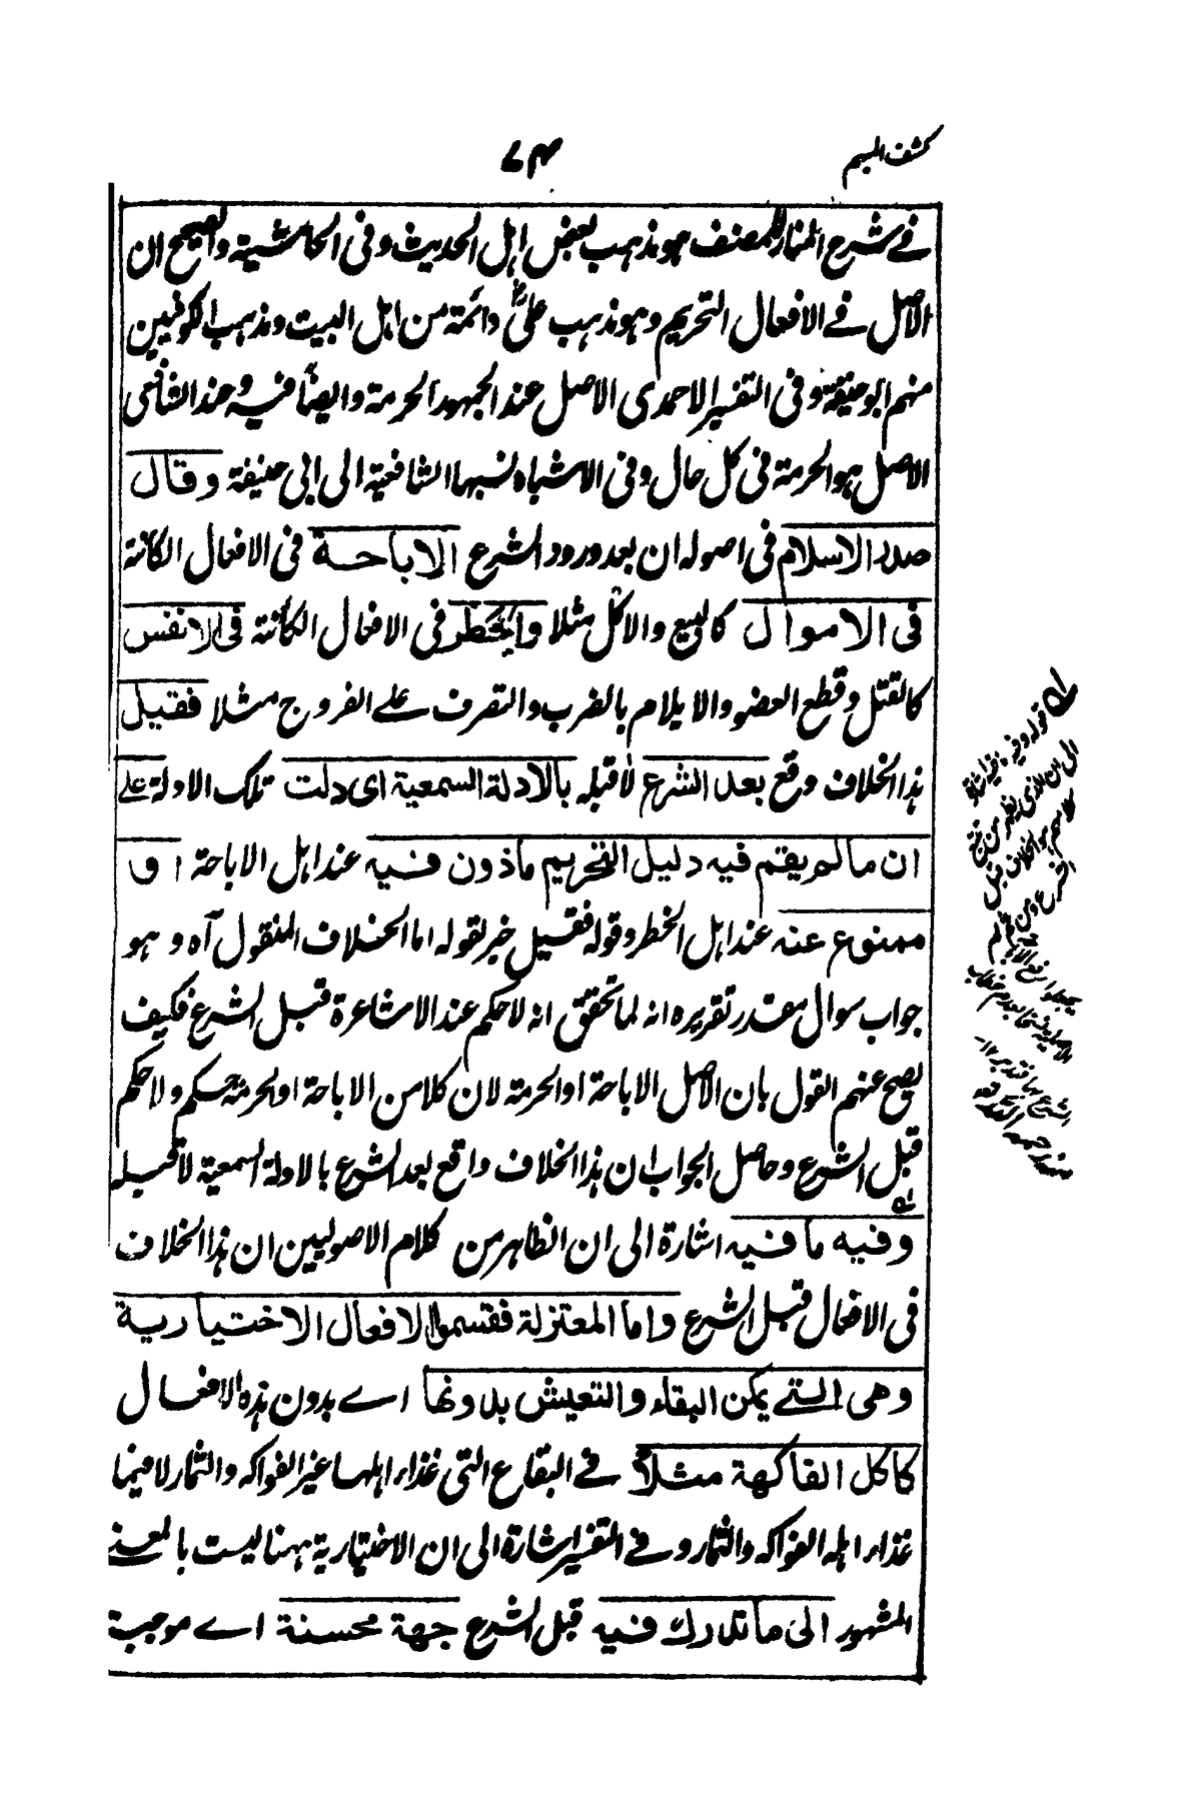 كشف المبهم
٧٤
في شرح المنار للمصنف هو مذهب بعض اهل الحديث وفى الحاشية والصحيح ان
الاصل في الافعال التحريم وهو مذهب علىؓ وائمة من اهل البيت ومذهب الكوفيين
منهم ابو حنيفة وفى التفسير الاحمدى الاصل عند الجمهور الحرمة وايضًا فيه وعند الشافعى
الاصل هو الحرمة فى كل حال وفى الاشباه نسبها الشافعية الى ابى حنيفة وقال
صدر الاسلام فى اصوله ان بعد ورود الشرع الاباحة فى الافعال الكائنة
فى الاموال كالبيع والاكل مثلا والحظر فى الافعال الكائنة فى الانفس
كالقتل وقطع العضو والايلام بالضرب والتصرف على الفروج مثلا فقيل
هذا الخلاف وقع بعد الشرع لا قبله بالادلة السمعية اى دلت تلك الادلة على
ان ما لم يقم فيه دليل التحريم ماذون فيه عند اهل الاباحة او
ممنوع عنه عند اهل الحظر وقوله فقيل خبر لقوله اما الخلاف المنقول آه وهو
جواب سوال مقدر تقريره انه لما تحقق انه لا حكم عند الاشاعرة قبل الشرع فكيف
يصح عنهم القول بان الاصل الاباحة او الحرمة لان كلا من الاباحة او الحرمة حكم ولا حكم
قبل الشرع وحاصل الجواب ان هذا الخلاف واقع بعد الشرع بالادلة السمعية لا قبله
وفيه ما فيه اشارة الى ان الظاهر من كلام الاصوليين ان هذا الخلاف
فى الافعال قبل الشرع واما المعتزلة فقسموا الافعال الاختيارية
وهى التي يمكن البقاء والتعيش بدونها اے بدون هذه الافعال
كاكل الفاكهة مثلاً في البقاع التى غذاء اهلها غير الفواكه والثمار لا فيما
غذاء اهله الفواكه والثمار وفي التفسير اشارة الى ان الاختيارية ههنا ليست بالمعنے
المشهور الى ما تدرك فيه قبل الشرع جهة محسنة اے موجبة
قوله وفيه ما فيه اشارة
الى ان الذى يظهر من تتبع
كلامهم هو الخلاف قبل
الشرع ومن ثم